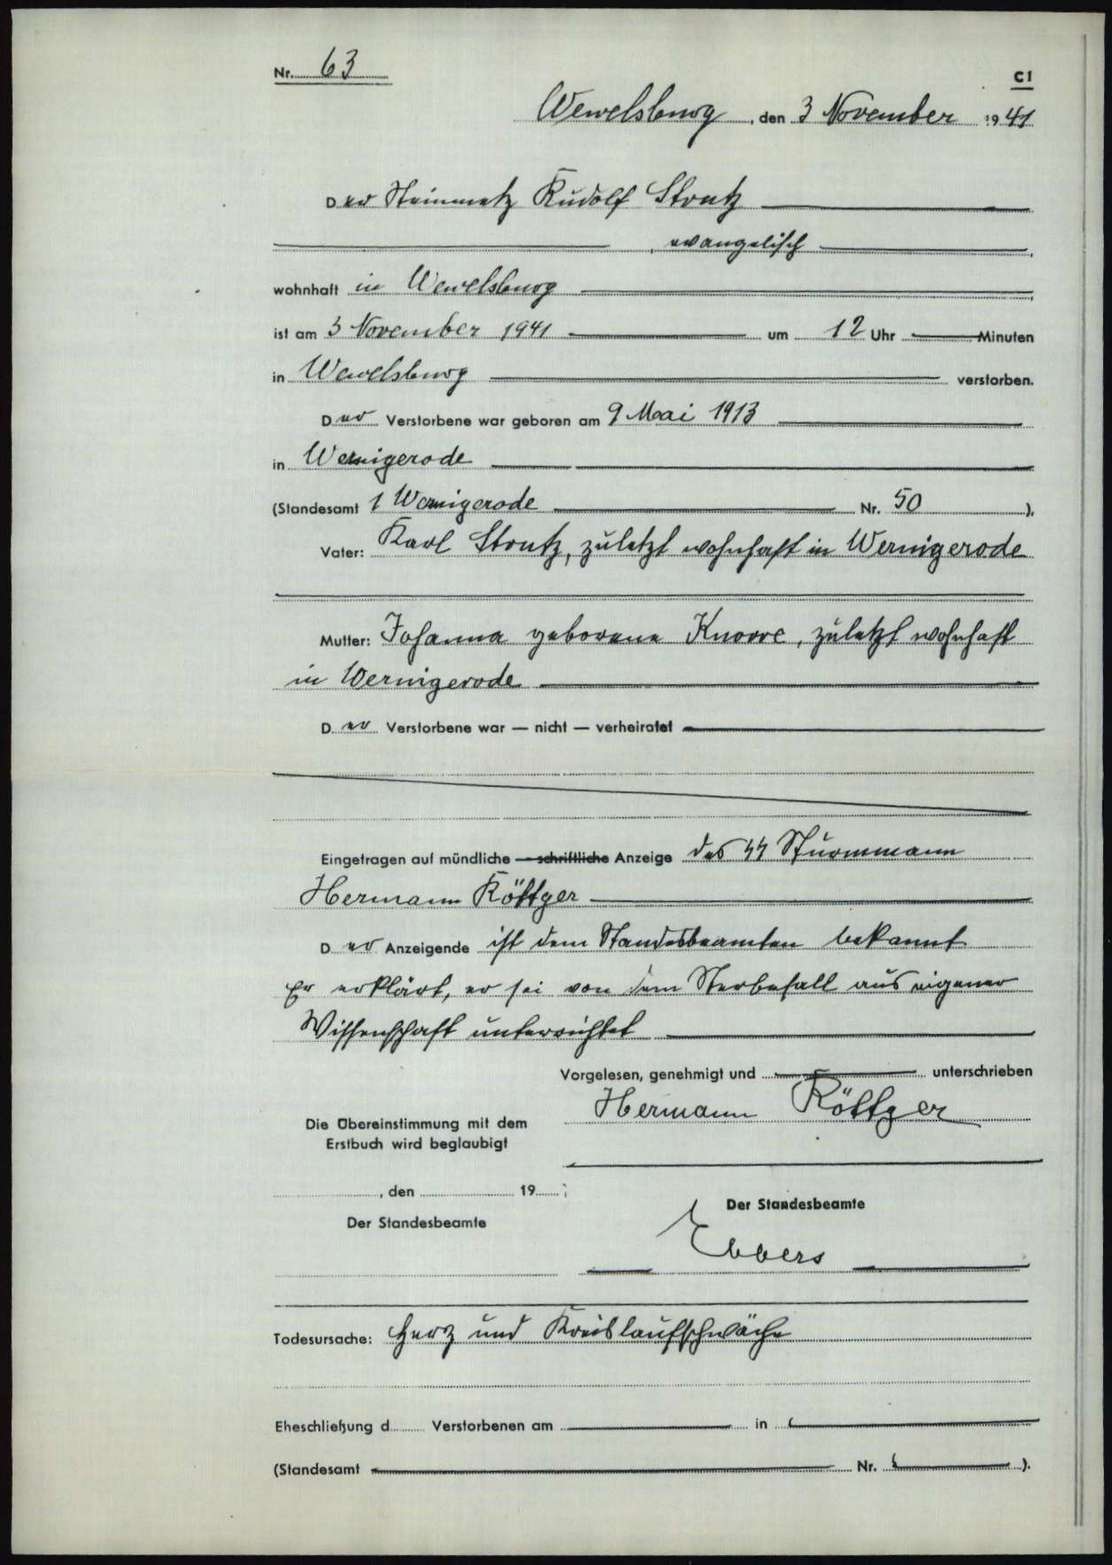 Nr. 63
C1
Wewelsburg, den 3 November 1941
Der Steinmetz Rudolf Strutz
, evangelisch
wohnhaft in Wewelsburg
ist am 3 November 1941 um 12 Uhr Minuten
in Wewelsburg verstorben.
Der Verstorbene war geboren am 9 Mai 1913
in Wernigerode
(Standesamt 1 Wernigerode Nr. 50 ).
Vater: Karl Strutz, zuletzt wohnhaft in Wernigerode
Mutter: Johanna geborene Knorre, zuletzt wohnhaft
in Wernigerode
Der Verstorbene war — nicht — verheiratet
Eingetragen auf mündliche — schriftliche Anzeige des SS Sturmmann
Hermann Röttger
Der Anzeigende ist dem Standesbeamten bekannt
Er erklärt, er sei von dem Sterbefall aus eigener
Wissenschaft unterrichtet
Vorgelesen, genehmigt und unterschrieben
Hermann Röttger
Die Übereinstimmung mit dem
Erstbuch wird beglaubigt
, den 19
Der Standesbeamte
Der Standesbeamte
Ebbers
Todesursache: Herz und Kreislaufschwäche
Eheschließung d Verstorbenen am in
(Standesamt Nr. ).